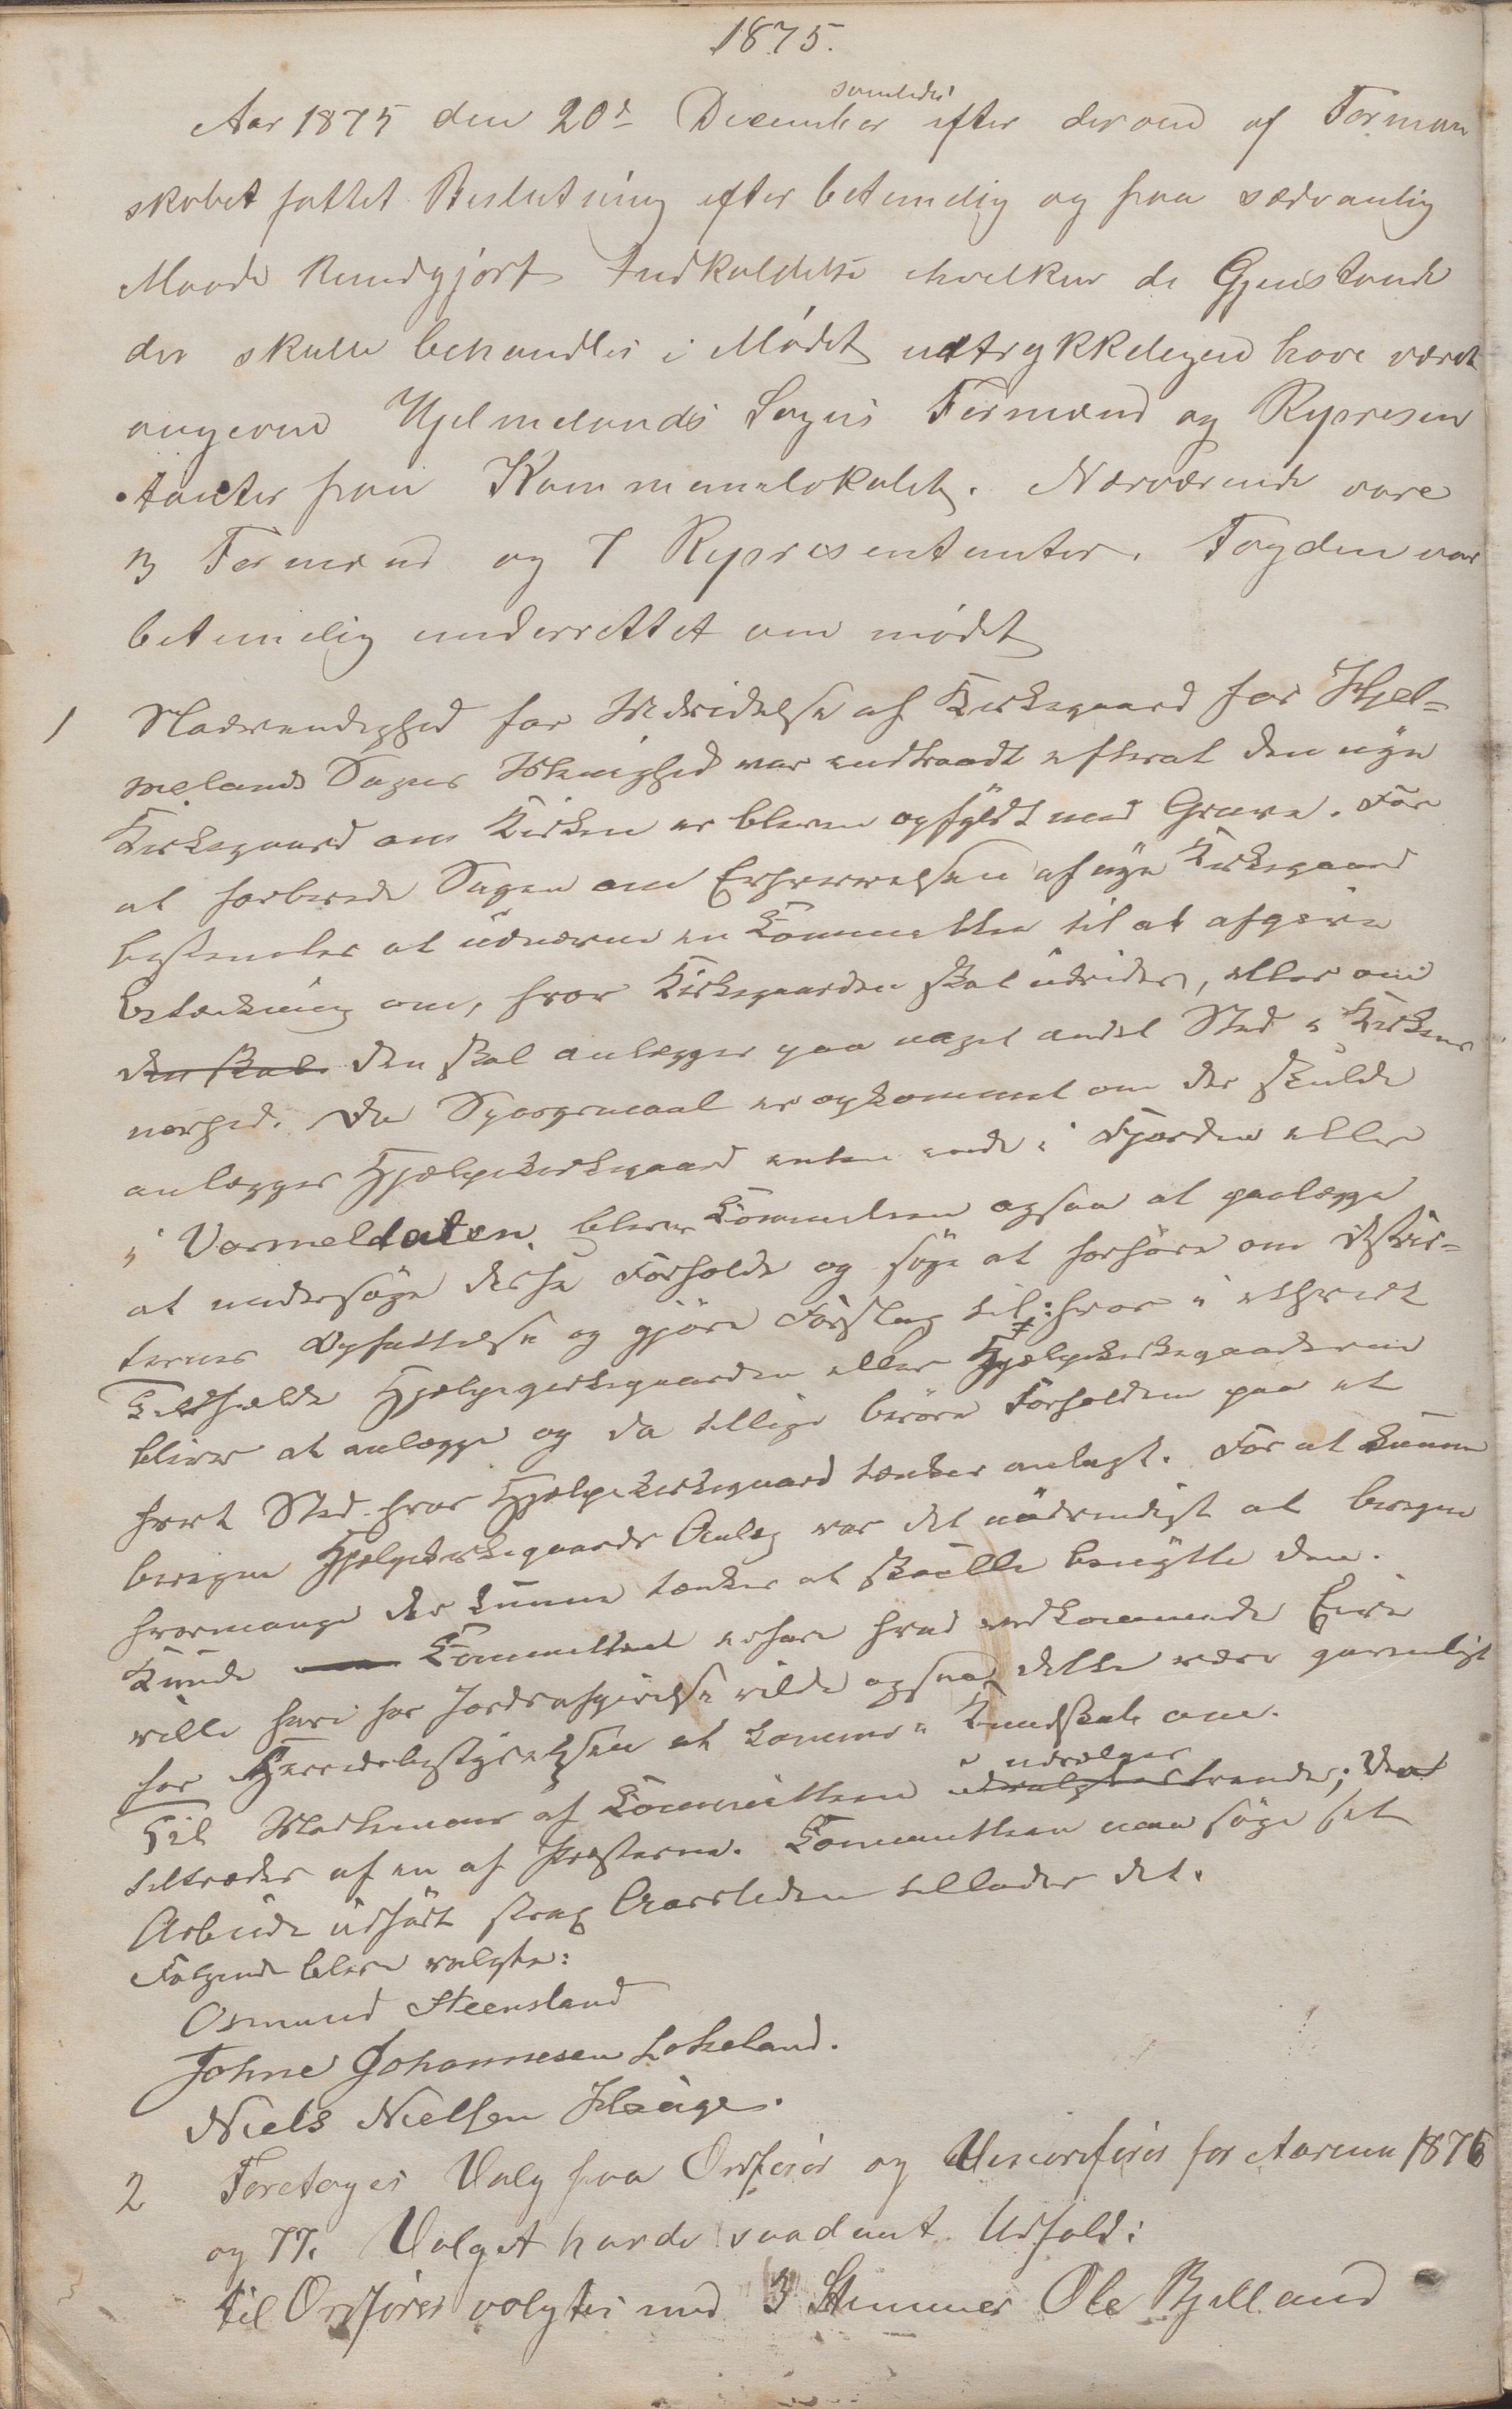 1875.
samledes
Aar 1875 den 20de December efter derom af Forman
skabet fattet Beslutning efter betimelig og paa sædvanlig
Maade kundgjort Indkaldelse hvelken de Gjenstande
der skulle behandles i Mødet udtrykkeligen have været
angivne Hjelmelands Sogns Formænd og Represen
tanter paa Kommunelokalet. Nærværende vare
3 Formænd og 7 Representanter. Fogden var
betimelig underrettet om mødet
1 Nødvendighed for Udvidelse af Kirkegaard for Hjel-
melands Sogns Menighed var indtraadt efterat den nye
Kirkegaard om Kirken er bleven opfyldt med Grave. For
at forberede Sagen om Erhvervelsen af nye Kirkegaard
bestemtes at udnævne en Committee til at afgive
Betænkning om, hvor Kirkegaarden skal udvides, eller om
den skal den skal anlægges paa noget andet Sted i Kirkens
nærhed. Da Spørgsmaal er opkommet om der skulde
anlægges Hjælpekirkegaard enten inde i Fjorden eller
i Vormeldalen, bliver Committeen ogsaa at paalægge
at undersøge disse Forholde og søge at forhøre om Distric-
ternes Opfattelse og gjøre Forslag til: hvor i ethvert
Tilfælde Hjælpegirkegaarden eller Hjælpekirkegaardene
bliver at anlægge og da tillige berøre Forholdene paa et
hvert Sted hvor Hjælpekirkegaard tænkes anlagt. For at kunne
beregne Hjælpekirkegaards Anlæg var det nødvendigt at beregne
hvormange der kunne tænkes at skulle benytte den.
Kunde Committeen erfare hvad vedkommende Eiere
ville have for Jordafgivelse vilde ogsaa dette være gavnligt
for Herredsbestyrelsen at komme i Kundskab om.
udvælges
Til Medlemmer af Committeen udvalgtes trende; den
tiltrædes af en af Presterne. Committeen maa søge sit
Arbeide udført strax Aarstiden tillader det.
Følgende bleve valgte:
Osmund Steensland
Johne Johannesen Lokeland.
Niels Nielsen Hauge.
2 Foretoges Valg paa Ordfører og Viceordfører for Aarene 1876
og 77. Valget havde saadant Udfald:
til Ordfører valgtes med 3 Stemmer Ole Bjelland